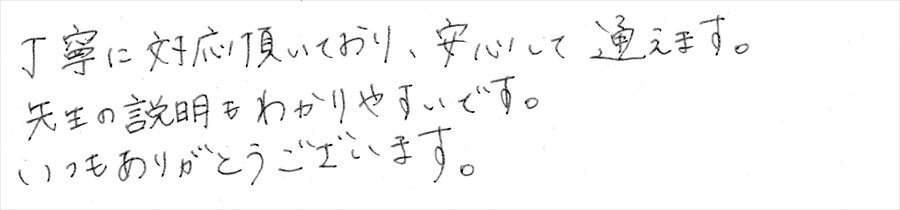 丁寧に対応頂いており、安心して通えます。
先生の説明もわかりやすいです。
いつもありがとうございます。